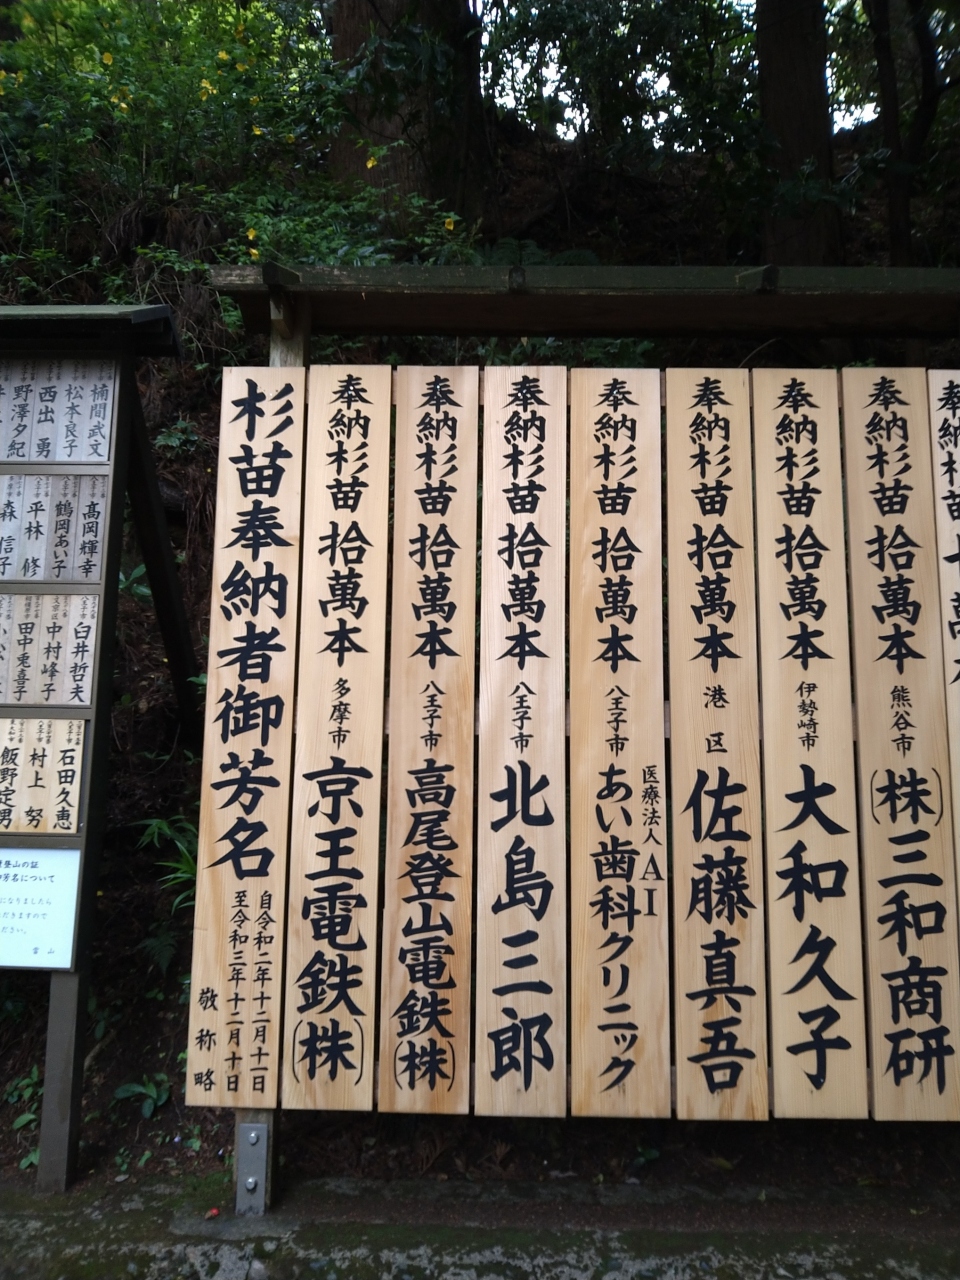 杉苗奉納者御芳名
自令和二年十二月十一日
至令和三年十二月十日
敬称略
奉納杉苗拾萬本 多摩市 京王電鉄(株)
奉納杉苗拾萬本 八王子市 高尾登山電鉄(株)
奉納杉苗拾萬本 八王子市 北島三郎
奉納杉苗拾萬本 八王子市 医療法人AI
あい歯科クリニック
奉納杉苗拾萬本 港区 佐藤真吾
奉納杉苗拾萬本 伊勢崎市 大和久子
奉納杉苗拾萬本 熊谷市 (株)三和商研
楠間武文
松本良子
西出勇
野澤夕紀
髙岡輝幸
鶴岡あい子
平林修
森信子
臼井哲夫
中村峰子
田中兎喜子
石田久恵
村上努
飯野定男
登山の証
芳名について
になりましたら
だきますので
ださい。
當山